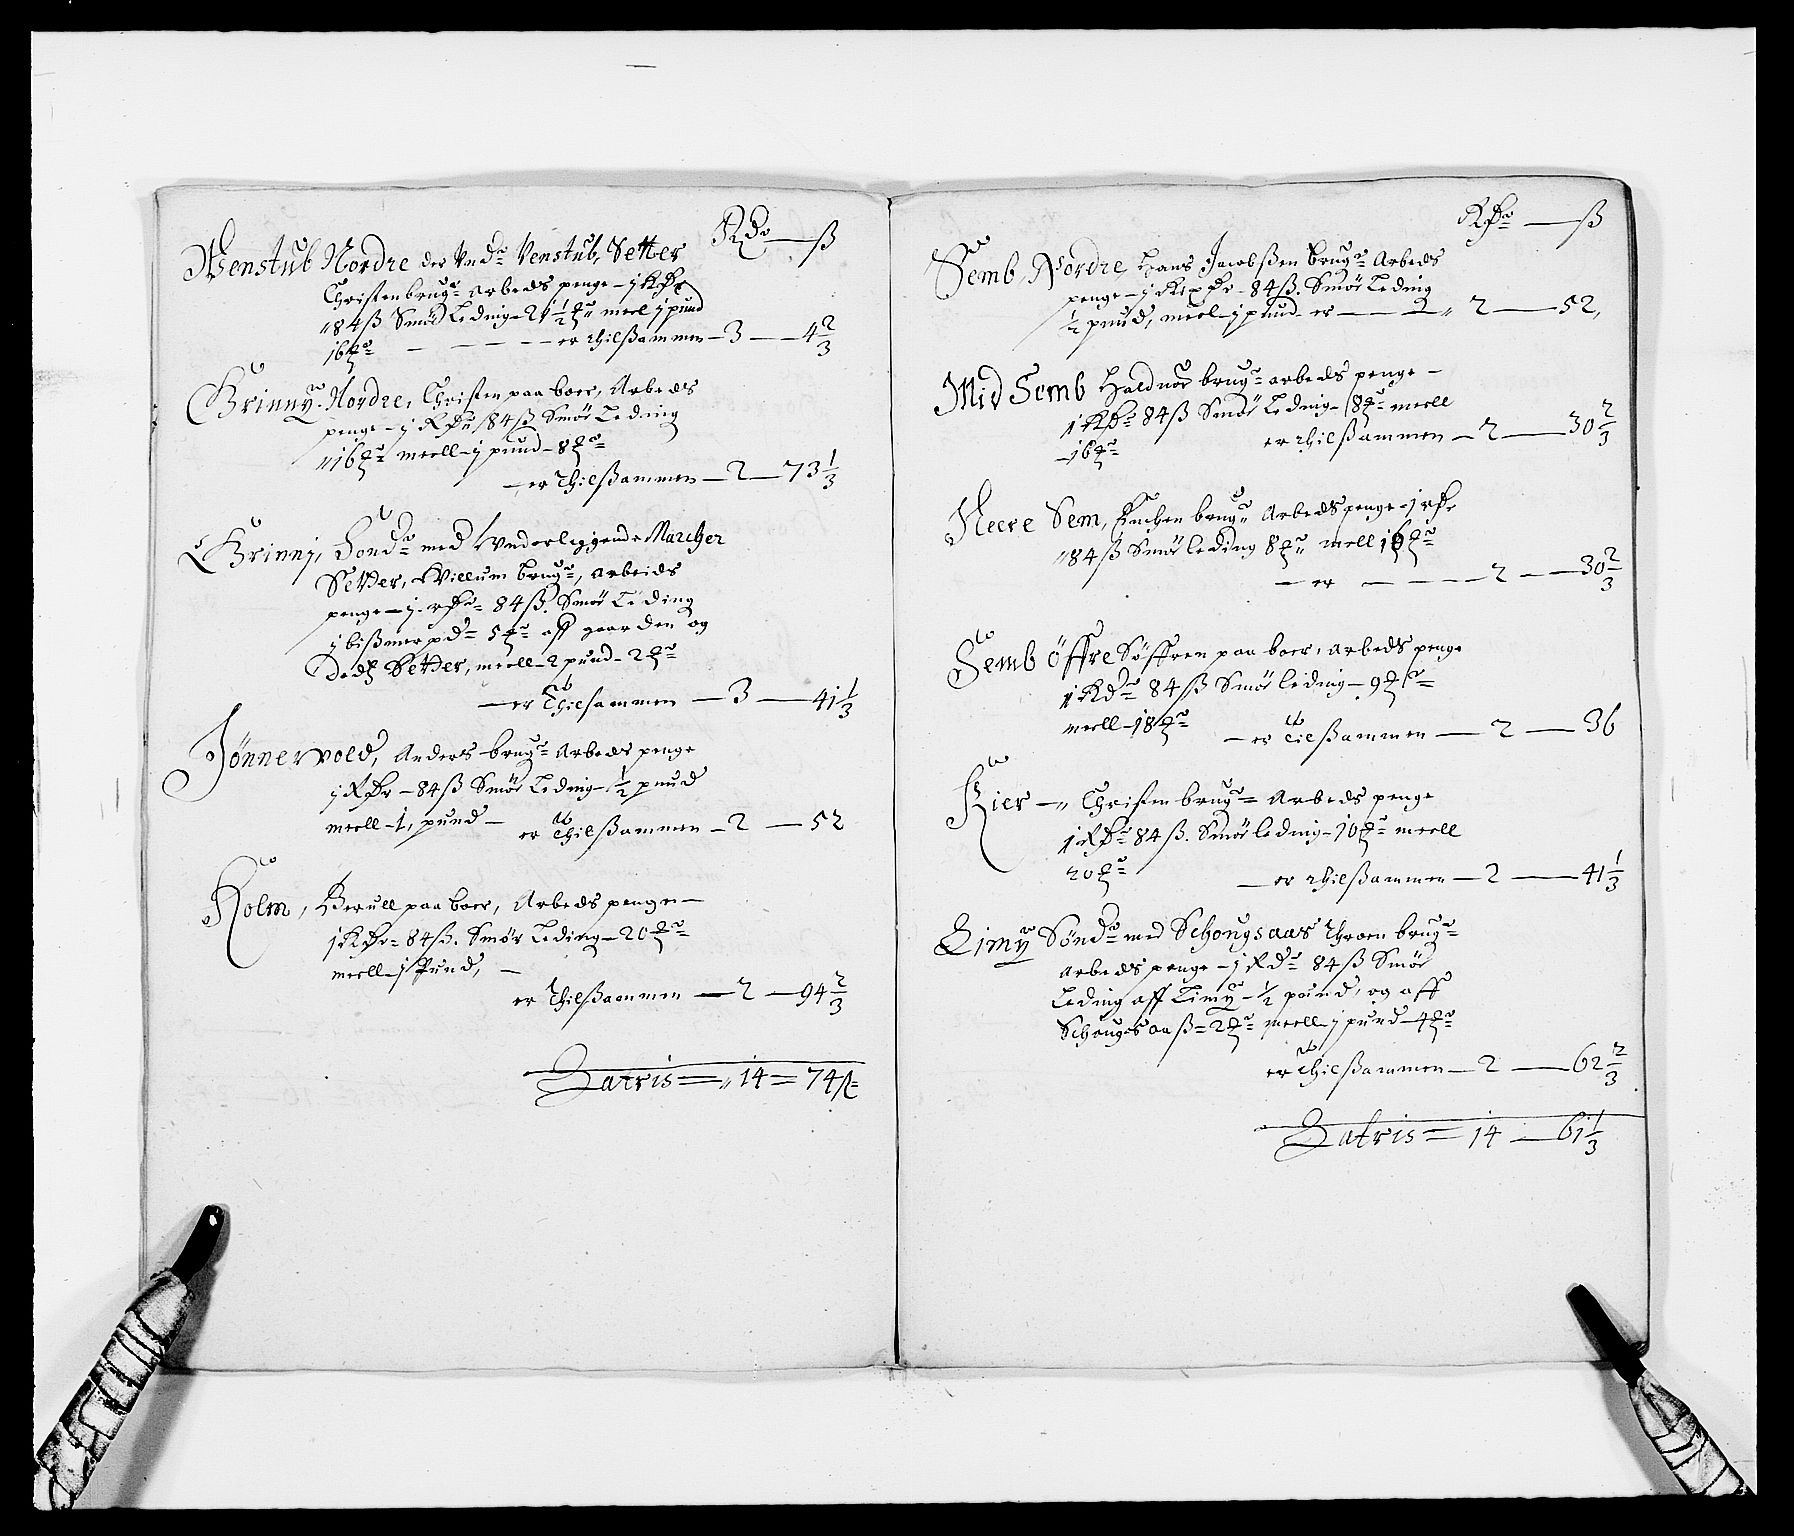 Rdr — ß
Wenstub Nordre der Und: Venstub, Setter
Christen brug: arbeds penge – j Rdr
84 ß Smör Leding – 21 1/2 m: meel j pund
16 m: — — — er thilßammen – 3 — 4 2/3
Grinny Nordre, Christen paa boer, Arbeds
penge – j Rdr 84 ß Smör Leding
16 m: meell – j pund – 8 m:
— er thilßammen – 2 — 73 1/3
Grinnj, Sönd: med Underliggende Marcher
Setter, Willum brug:, arbeids
penge – j rdr: 84 ß. Smör Leding
j bißmer pd: 5 m: aff gaarden og
Setter, meell – 2 pund – 2 m:
— er Thilsammen — 3 — 41 1/3
Jönnervold, Anders brug: Arbeds penge
j Rdr – 84 ß Smör Leding – 1/2 pund
meell – 1, pund –
er Thilßammen – 2 — 52
Holm, Berull paa boer, Arbeds penge –
j Rdr: 84 ß. Smör Leding – 20 m:
meell – j Pund, –
er Thilßammen — 2 — 94 2/3
Latris = 14 = 74 ß

Rdr: — ß
Semb Nordre, Hans Jacobßen brug: Arbeds
penge – j Rixdr – 84 ß. Smör Leding
1/2 pund, meel – j pund – er — — 2 — 52,
Mid Semb Halduor brug: arbeds penge –
1 Rdr: 84 ß Smör Leding – 8 m: meell
– 16 m: er thilßammen – 2 — 30 2/3
Neere Sem, brug: Arbeds penge – j rdr
84 ß Smör leding 8 m: mell 16 m:
— er — — — 2 — 30 2/3
Semb öffre Söffren paa boer, arbeds penge
1 Rdr: 84 ß Smör leding – 9 m:
meell – 18 m: – er tilßammen — 2 — 36
Kier – Christen brug: Arbeds penge
1 Rdr: 84 ß. Smör leding – 10 m: meell
20 m: — er thilßammen – 2 — 41 1/3
Limy Sönd: med Schougsaas Throen brug:
arbeds penge – j Rd: 84 ß Smör
Leding aff Limy – 1/2 pound, og aff
Schougsaaß = 2 m: meell – j pund – 4 m:
er thilßammen – 2 — 62 2/3
Latris = 14 — 61 1/3